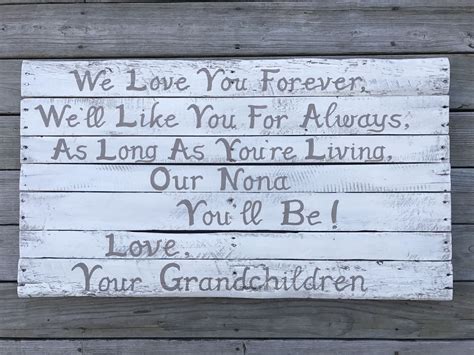 We Love You Forever,
We'll Like You For Always,
As Long As You're Living,
Our Nona
You'll Be!
Love,
Your Grandchildren